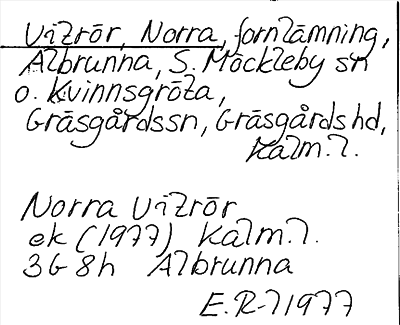 Vitrör, Norra, fornlämning,
Albrunna, S. Möckleby sn
o. Kvinnsgröta,
Gräsgårds sn, Gräsgårds hd,
Kalm. l.
Norra Vitrör
ek (1977) Kalm. l.
3G 8h Albrunna
E.R-l 1977